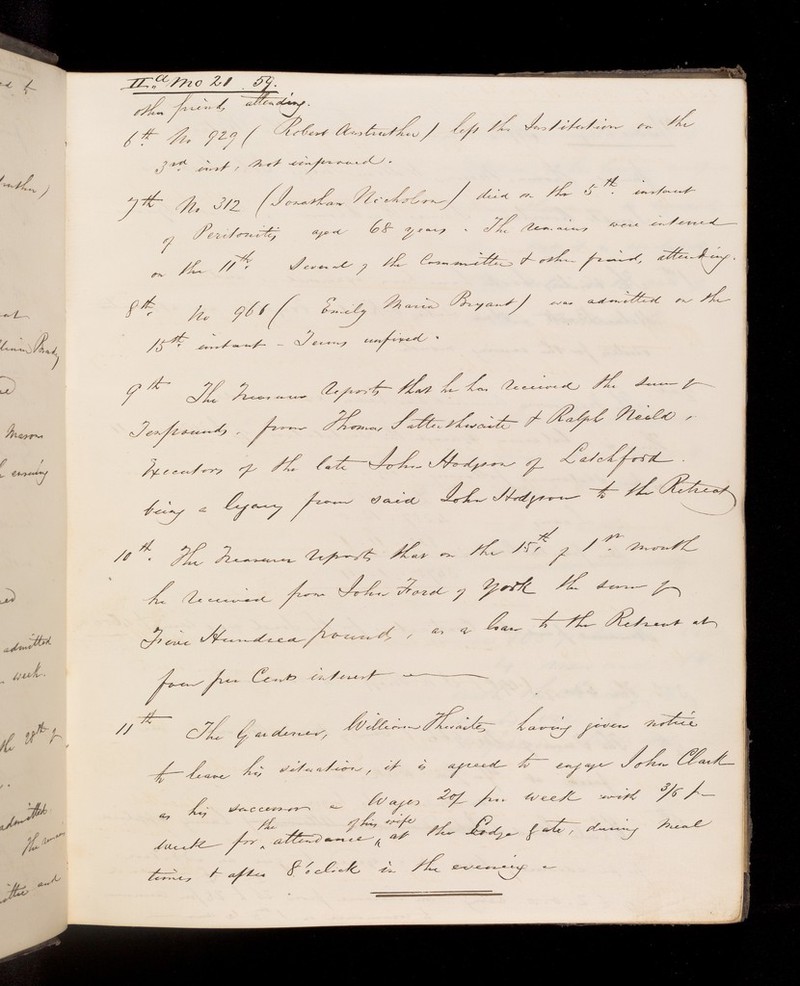 IId mo 21. 59.
other friends attending.
6th. No 929 (Robert Anstruther) left the Institution on the
3rd inst, not improved.
7th No 312 (Jonathan Nicholson) died on the 5th. instant
of Peritonitis aged 68 years. The remains were interred
on the 11th. Several of the Committee & other friends, attending.
8th. No 966 (Emily Maria Bryant) was admitted on the
15th. instant - Terms unfixed.
9th The Treasurer reports that he has received the sum of
Ten pounds. from Thomas Satterthwaite & Ralph Neild,
Executors of the late John Hodgson of Latchford.
being a legacy from said John Hodgson to the Retreat
10th. The Treasurer reports that on the 15th. of 1st. month
he received from John Ford of York the sum of
Five Hundred pounds, as a loan to the Retreat at
four per Cents interest
11th The Gardener, William Thwaites having given notice
to leave his situation, it is agreed to engage John Clark
as his successor - Wages 20/ per week with 3/6 p
week for the attendance of his wife at the Lodge gate, during meal
times & after 8 o'clock in the evening -
William Brady
Mason
ensuing
admitted
week.
the 28th of
admitted
and